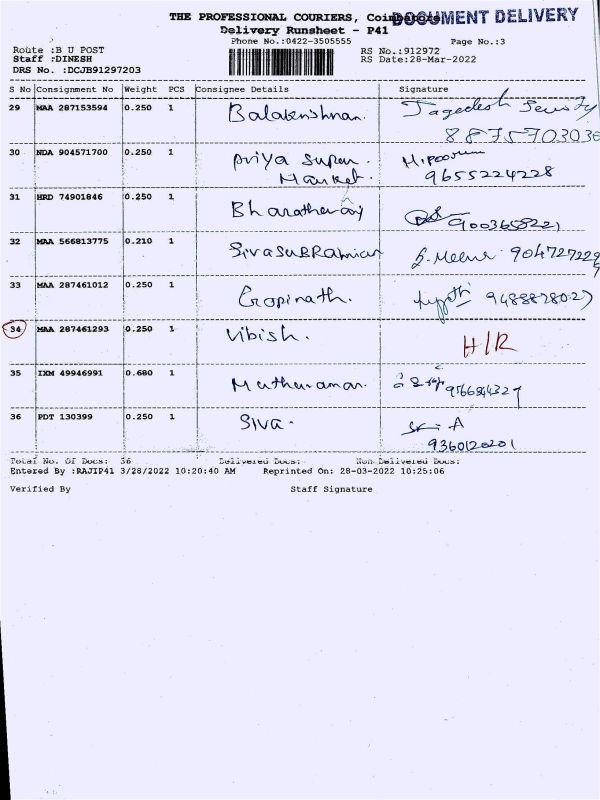 THE PROFESSIONAL COURIERS, Coimbatore
DOCUMENT DELIVERY
Delivery Runsheet - P41
Phone No.:0422-3505555 Page No.:3
Route :B U POST RS No.:912972
Staff :DINESH RS Date:28-Mar-2022
DRS No. :DCJB91297203
S No Consignment No Weight PCS Consignee Details Signature
29 MAA 287153594 0.250 1 Balakrishnan. Jagedesh
30 NDA 904571700 0.250 1 Priya Super. M.poorni
Market. 9655224228
31 HRD 74901846 0.250 1 Bharatheraj 9003658221
32 MAA 566813775 0.210 1 SivaSUBRAmnian S. Meena
33 MAA 287461012 0.250 1 Gopinath.
34 MAA 287461293 0.250 1 Vibish. H/R
35 IXM 49946991 0.680 1 Muthuraman.
36 PDT 130399 0.250 1 Siva.
9360120201
Total No. Of Docs: 36 Delivered Docs: Non Delivered Docs:
Entered By :RAJIP41 3/28/2022 10:20:40 AM Reprinted On: 28-03-2022 10:25:06
Verified By Staff Signature